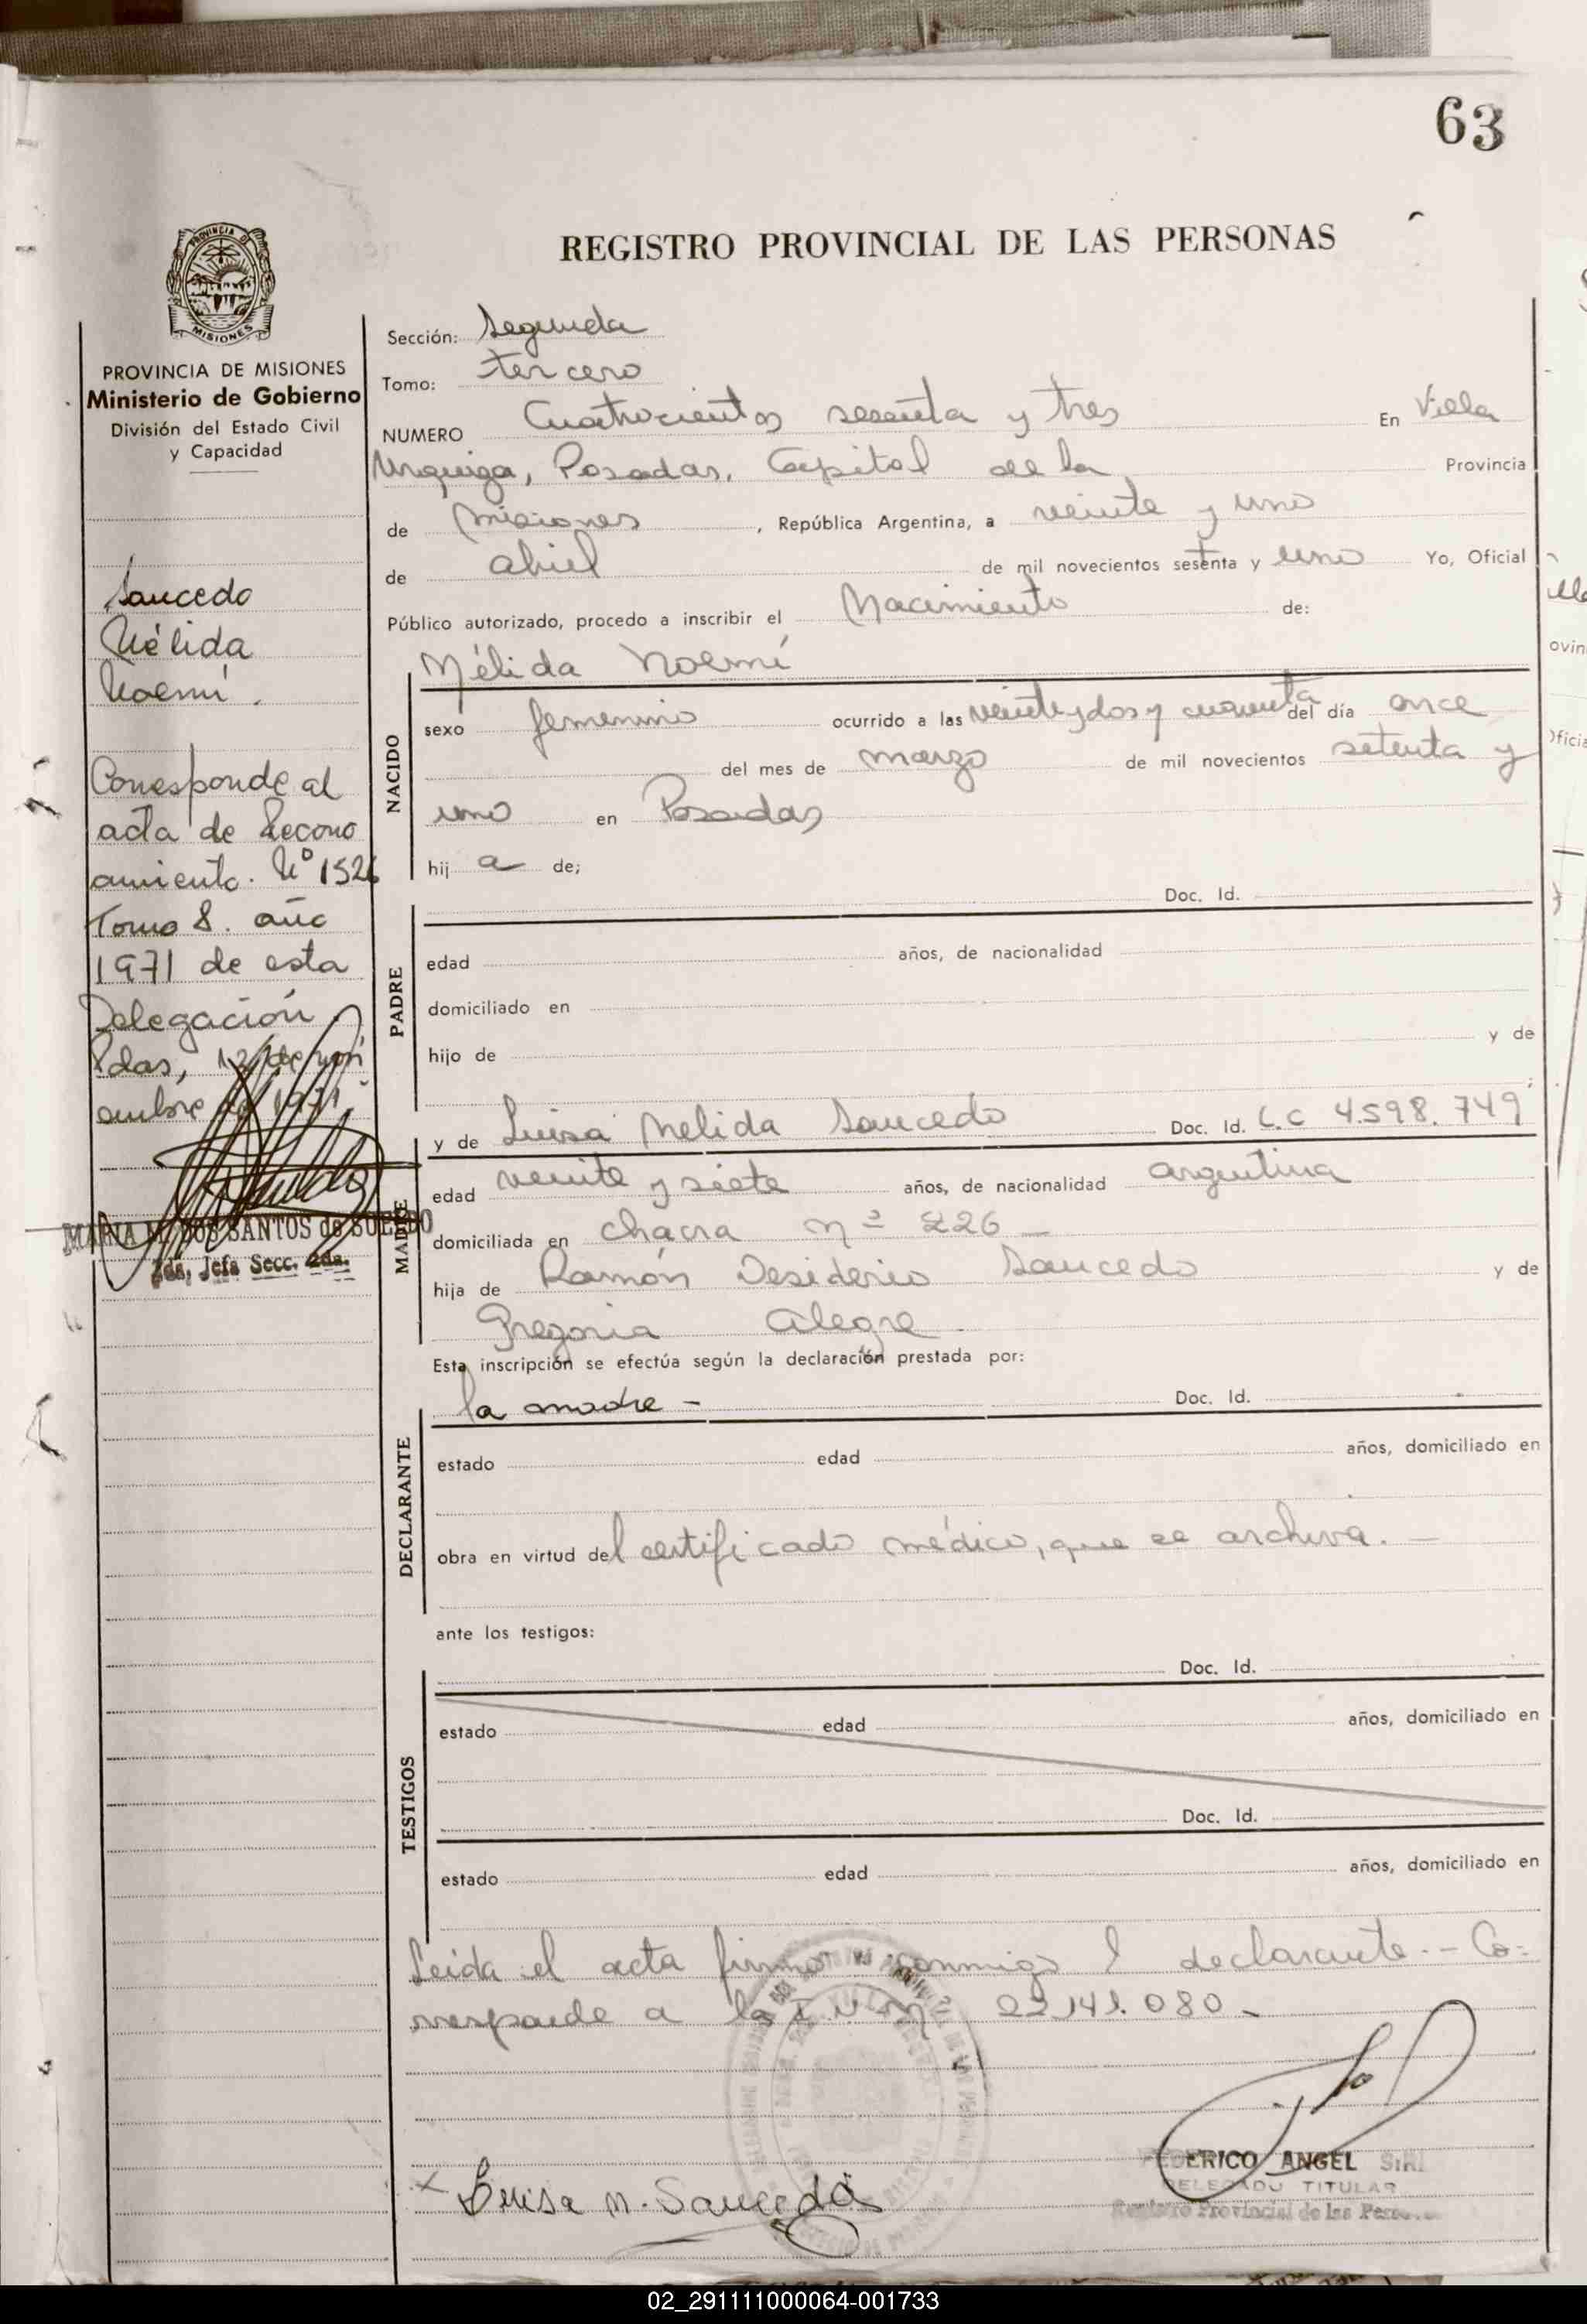 63
REGISTRO PROVINCIAL DE LAS PERSONAS
PROVINCIA DE MISIONES
Ministerio de Gobierno
División del Estado Civil
y Capacidad
Saucedo
Nélida
Noemí.
Corresponde al
acta de Recono
cimiento. Nº 1526
Tomo 8. año
1971 de esta
Delegación
Pdas, 12 de novi
embre de 1971.
MARIA DOS SANTOS de
Jefa Secc. 2da.
Sección: Segunda
Tomo: tercero
NUMERO Cuatrocientos sesenta y tres En Villa
Urquiza, Posadas, Capital de la Provincia
de Misiones, República Argentina, a veinte y uno
de abril de mil novecientos setenta y uno Yo, Oficial
Público autorizado, procedo a inscribir el Nacimiento de:
Nélida Noemí
NACIDO
sexo femenino ocurrido a las veinte y dos y cuarenta del día once
del mes de marzo de mil novecientos setenta y
uno en Posadas
hij a de;
Doc. Id.
PADRE
edad años, de nacionalidad
domiciliado en
hijo de y de
y de Luisa Nelida Saucedo Doc. Id. L.C 4.598.749
MADRE
edad veinte y siete años, de nacionalidad argentina
domiciliada en chacra nº 226
hija de Ramón Desiderio Saucedo y de
Gregoria Alegre
Esta inscripción se efectúa según la declaración prestada por:
la madre - Doc. Id.
DECLARANTE
estado edad años, domiciliado en
obra en virtud del certificado médico, que se archiva. -
ante los testigos:
Doc. Id.
TESTIGOS
estado edad años, domiciliado en
Doc. Id.
estado edad años, domiciliado en
Leida el acta firma conmigo l declarante. - Co=
rresponde a la I.U nº 22.141.080 -
Luisa N. Saucedo
FEDERICO ANGEL
DELEGADO TITULAR
Registro Provincial de las
02_291111000064-001733